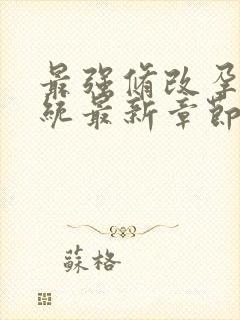 最強脩改孕
統最新章節
蘇格